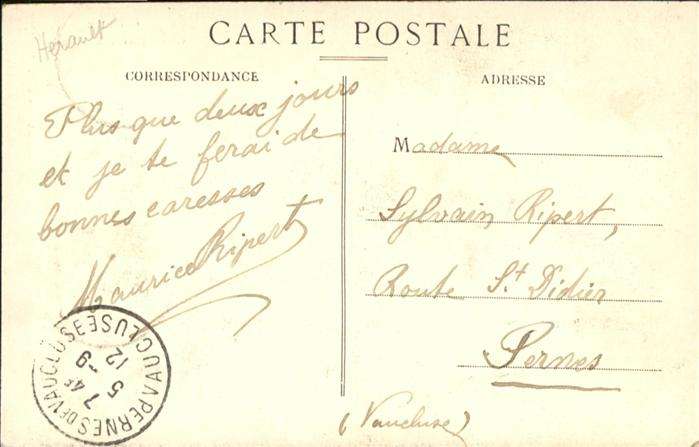 Hérault
CARTE POSTALE
CORRESPONDANCE
Plus que deux jours
et je te ferai de
bonnes caresses
Maurice Ripert
ADRESSE
Madame
Sylvain Ripert,
Route St Didier
Pernes
(Vaucluse)
PERNES DE VAUCLUSE VAUCLUSE
7 45
5 -9
12